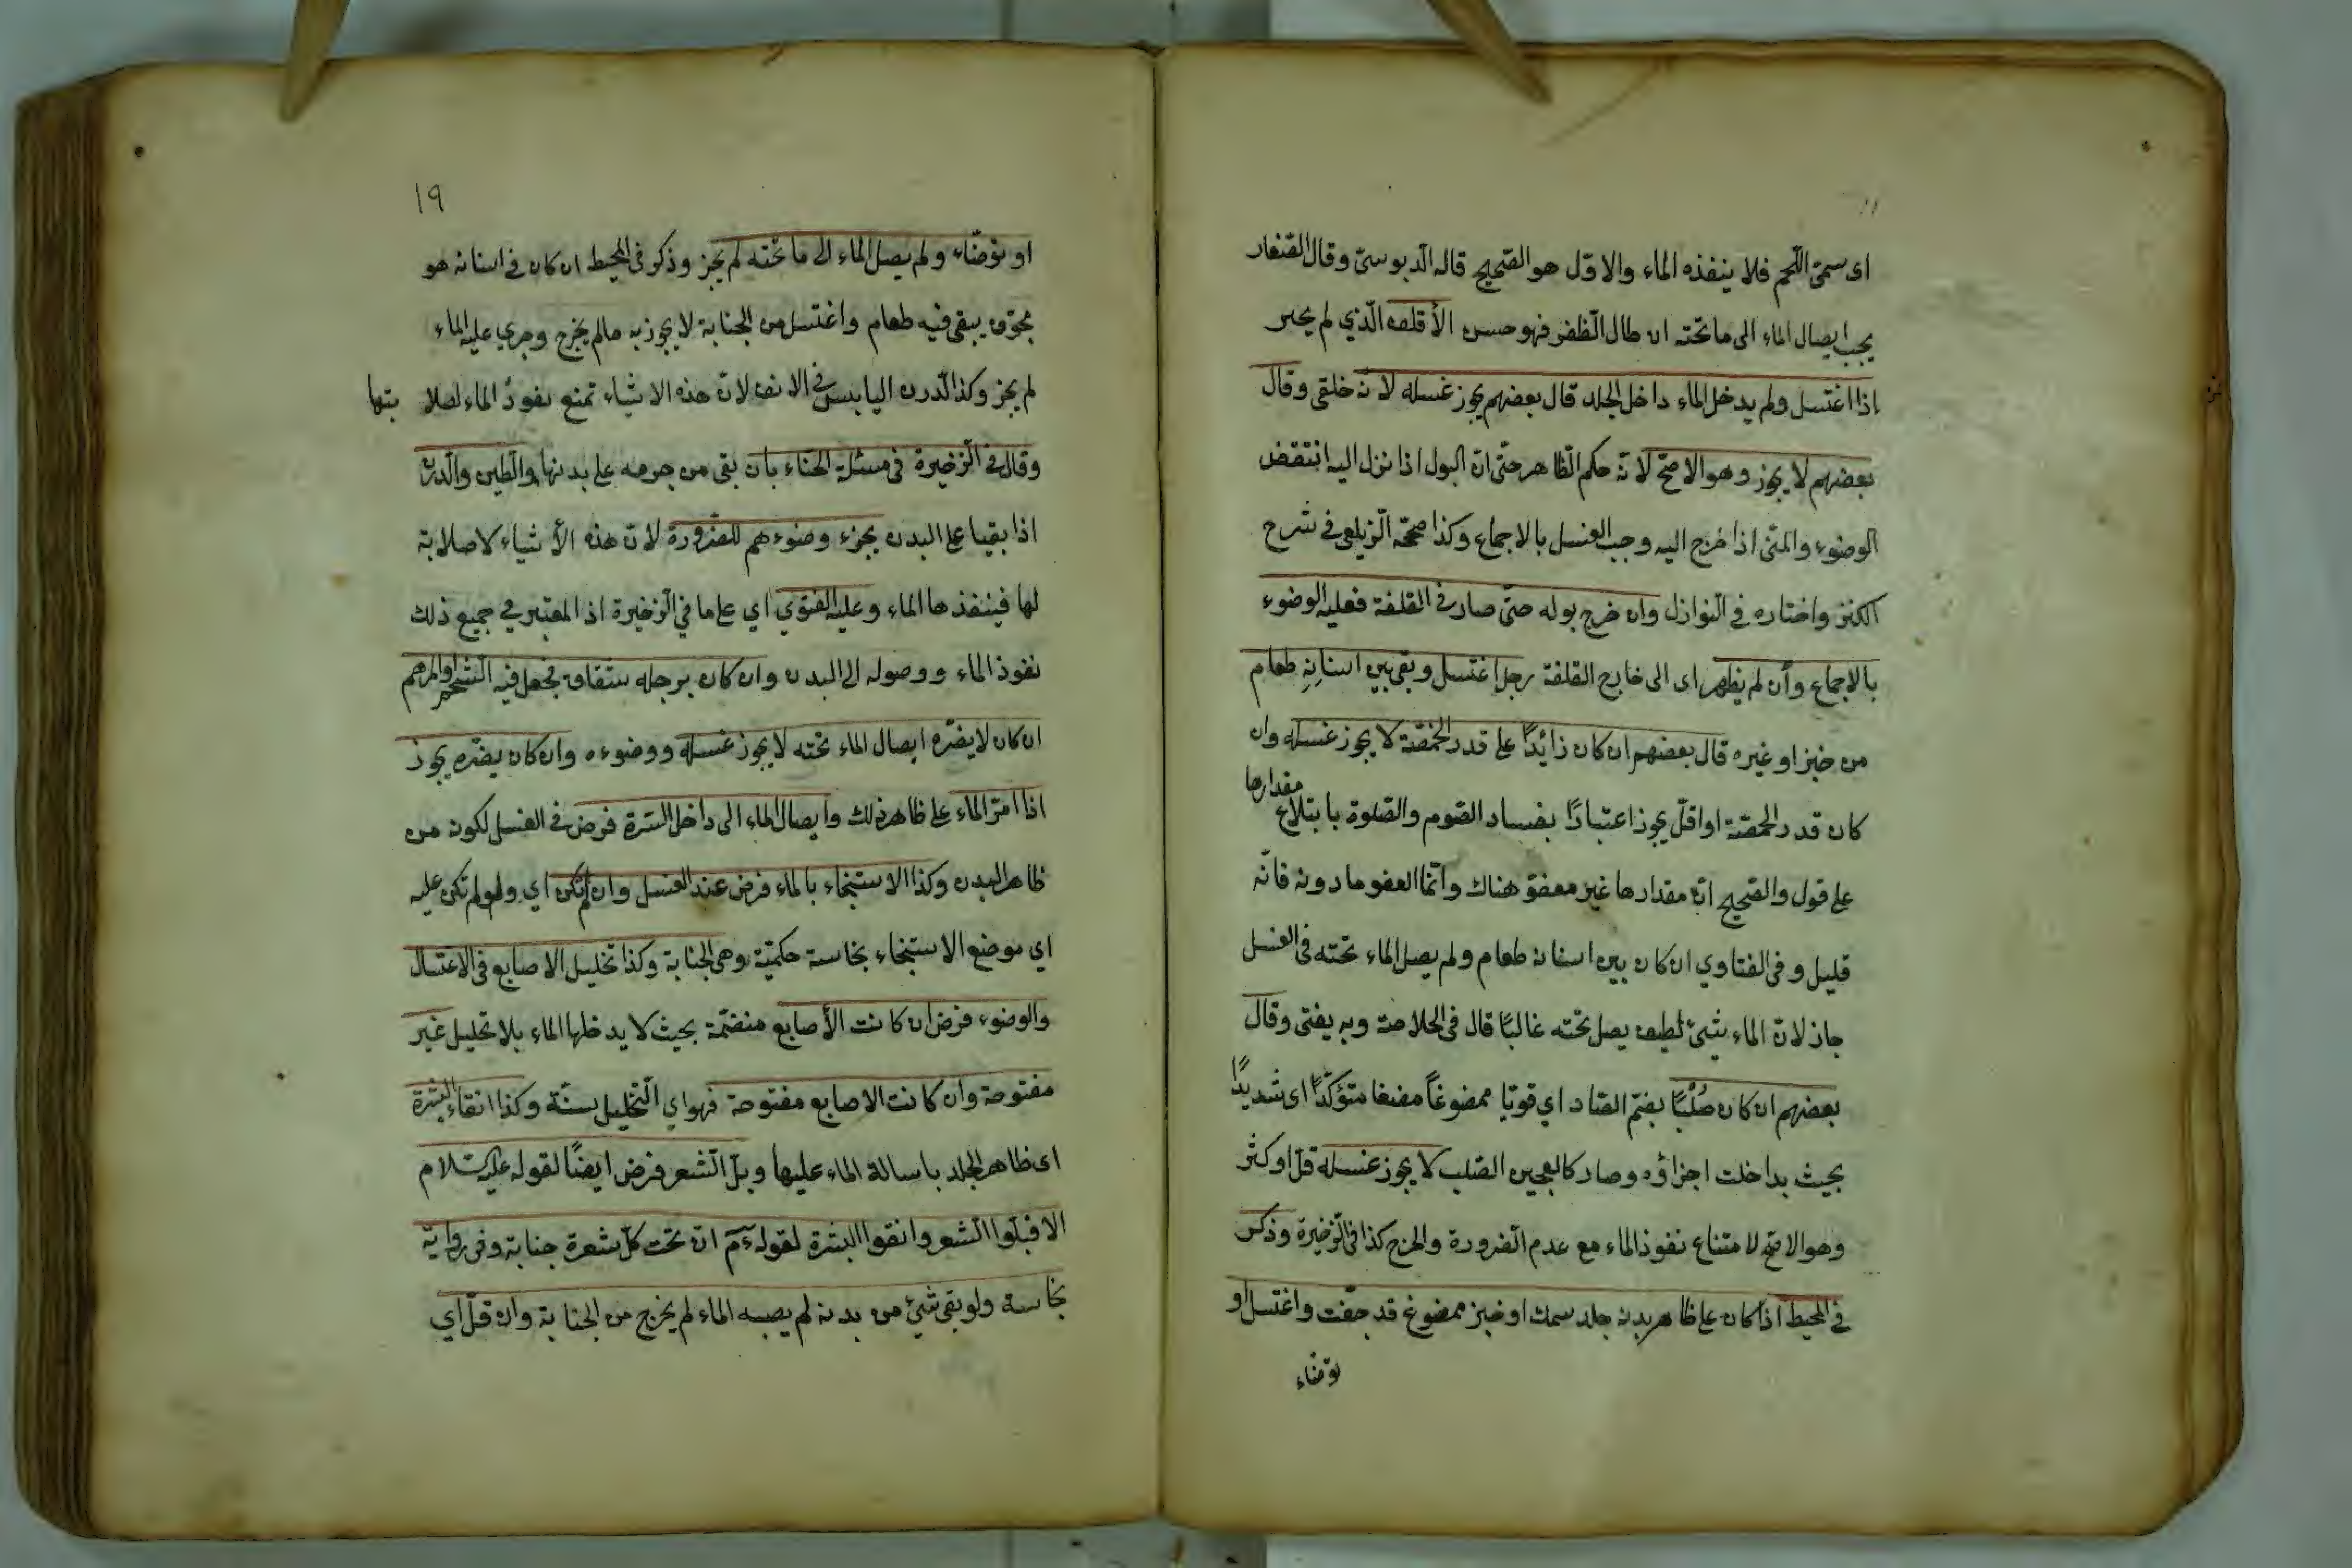 اى سمىّ اللّحم فلا ينفذه الماء والاوّل هو الصّحيح قاله الدّبوسىّ وقال الصّفار
يجب ايصال الماء الى ما تحته ان طال الظّفر فهو حسن الأقلف الّذي لم يختن
اذا اغتسل ولم يدخل الماء داخل الجلد قال بعضهم يجوز غسله لانه خلقى وقال
بعضهم لا يجوز وهو الاصحّ لانّه حكم الظّاهر حتّى انّ البول اذا نزل اليه انتقض
الوضوء والمنّى اذا خرج اليه وجب الغسل بالاجماع وكذا صحّحه الزّيلعى في شرح
الكنز واختاره في النّوازل وان خرج بوله حتّى صار في القلفة فعليه الوضوء
بالاجماع وأن لم يظهر اى الى خارج القلفة رجل اغتسل وبقى بين اسنانه طعام
من خبز او غيره قال بعضهم ان كان زائدًا على قدر الحمّصة لا يجوز غسله وان
كان قدر الحمّصة او اقلّ يجوز اعتبارًا بفساد الصّوم والصّلوة بابتلاع مقدارها
على قول والصّحيح انّ مقدارها غير معفوّ هناك وانّما العفو ما دونه فانّه
قليل وفى الفتاوي ان كان بين اسنانه طعام ولم يصل الماء تحته فى الغسل
جاز لانّ الماء شيئ لطيف يصل تحته غالبًا قال فى الخلاصة وبه يفتى وقال
بعضهم ان كان صُلْبًا بضمّ الصّاد اي قويّا ممضوغاً مضغا متؤكّدًا اى شديدًا
بحيث بداخلت اجزاؤه وصار كالعجين الصّلب لا يجوز غسله قلّ او كثر
وهو الاصحّ لامتناع نفوذ الماء مع عدم الضّرورة والحرج كذا فى الزّخيرة وذكر
في المحيط اذا كان على ظاهر بدنه جلد سمك او خبز ممضوغ قد جفّت واغتسل او
توضّاء
١٩
او توضّاء ولم يصل الماء الى ما تحته لم يجز وذكر فى المحيط ان كان فى اسنانه هو
مجوّف يبقى فيه طعام واغتسل من الجنابة لا يجوز به مالم يخرج وجري عليه الماء
لم يجز وكذا الدّرن اليابس في الانف لانّ هذه الاشياء تمنع نفوذ الماء لصلابتها
وقال في الزّخيرة في مسئلة الحنّاء بان بقى من جرمه على بدنها والطّين والدّرن
اذا بقيا على البدن يجزء وضوءهم للضّرورة لانّ هذه الأشياء لا صلابة
لها فينفذها الماء وعليه الفتوي اي على ما في الزّخيرة اذ المعتبر في جميع ذلك
نفوذ الماء ووصوله الى البدن وان كان برجله شقاق فجعل فيه الشّحم او المرهم
ان كان لا يضرّه ايصال الماء تحته لا يجوز غسله ووضوءه وان كان يضرّه يجوز
اذا امرّ الماء على ظاهر ذلك وايصال الماء الى داخل السّرة فرض في الغسل لكونه من
ظاهر البدن وكذا الاستنجاء بالماء فرض عند الغسل وان لم تكن اي ولو لم تكن عليه
اي موضع الاستنجاء نجاسة حكميّة وهى الجنابة وكذا تخليل الاصابع فى الاغتسال
والوضوء فرض ان كانت الأصابع منضمّة بحيث لا يدخلها الماء بلا تخليل غير
مفتوحة وان كانت الاصابع مفتوحة فهو اي التّخليل سنّة وكذا انقاء البشرة
اى ظاهر الجلد باسالة الماء عليها وبلّ الشّعر فرض ايضًا لقوله عليه السّلام
الا فبلّوا الشّعر وانقوا البشرة لقوله عم انّ تحت كلّ شعرة جنابة وفى رواية
نجاسة ولو بقى شيئ من بدنه لم يصبه الماء لم يخرج من الجنابة وان قلّ اي